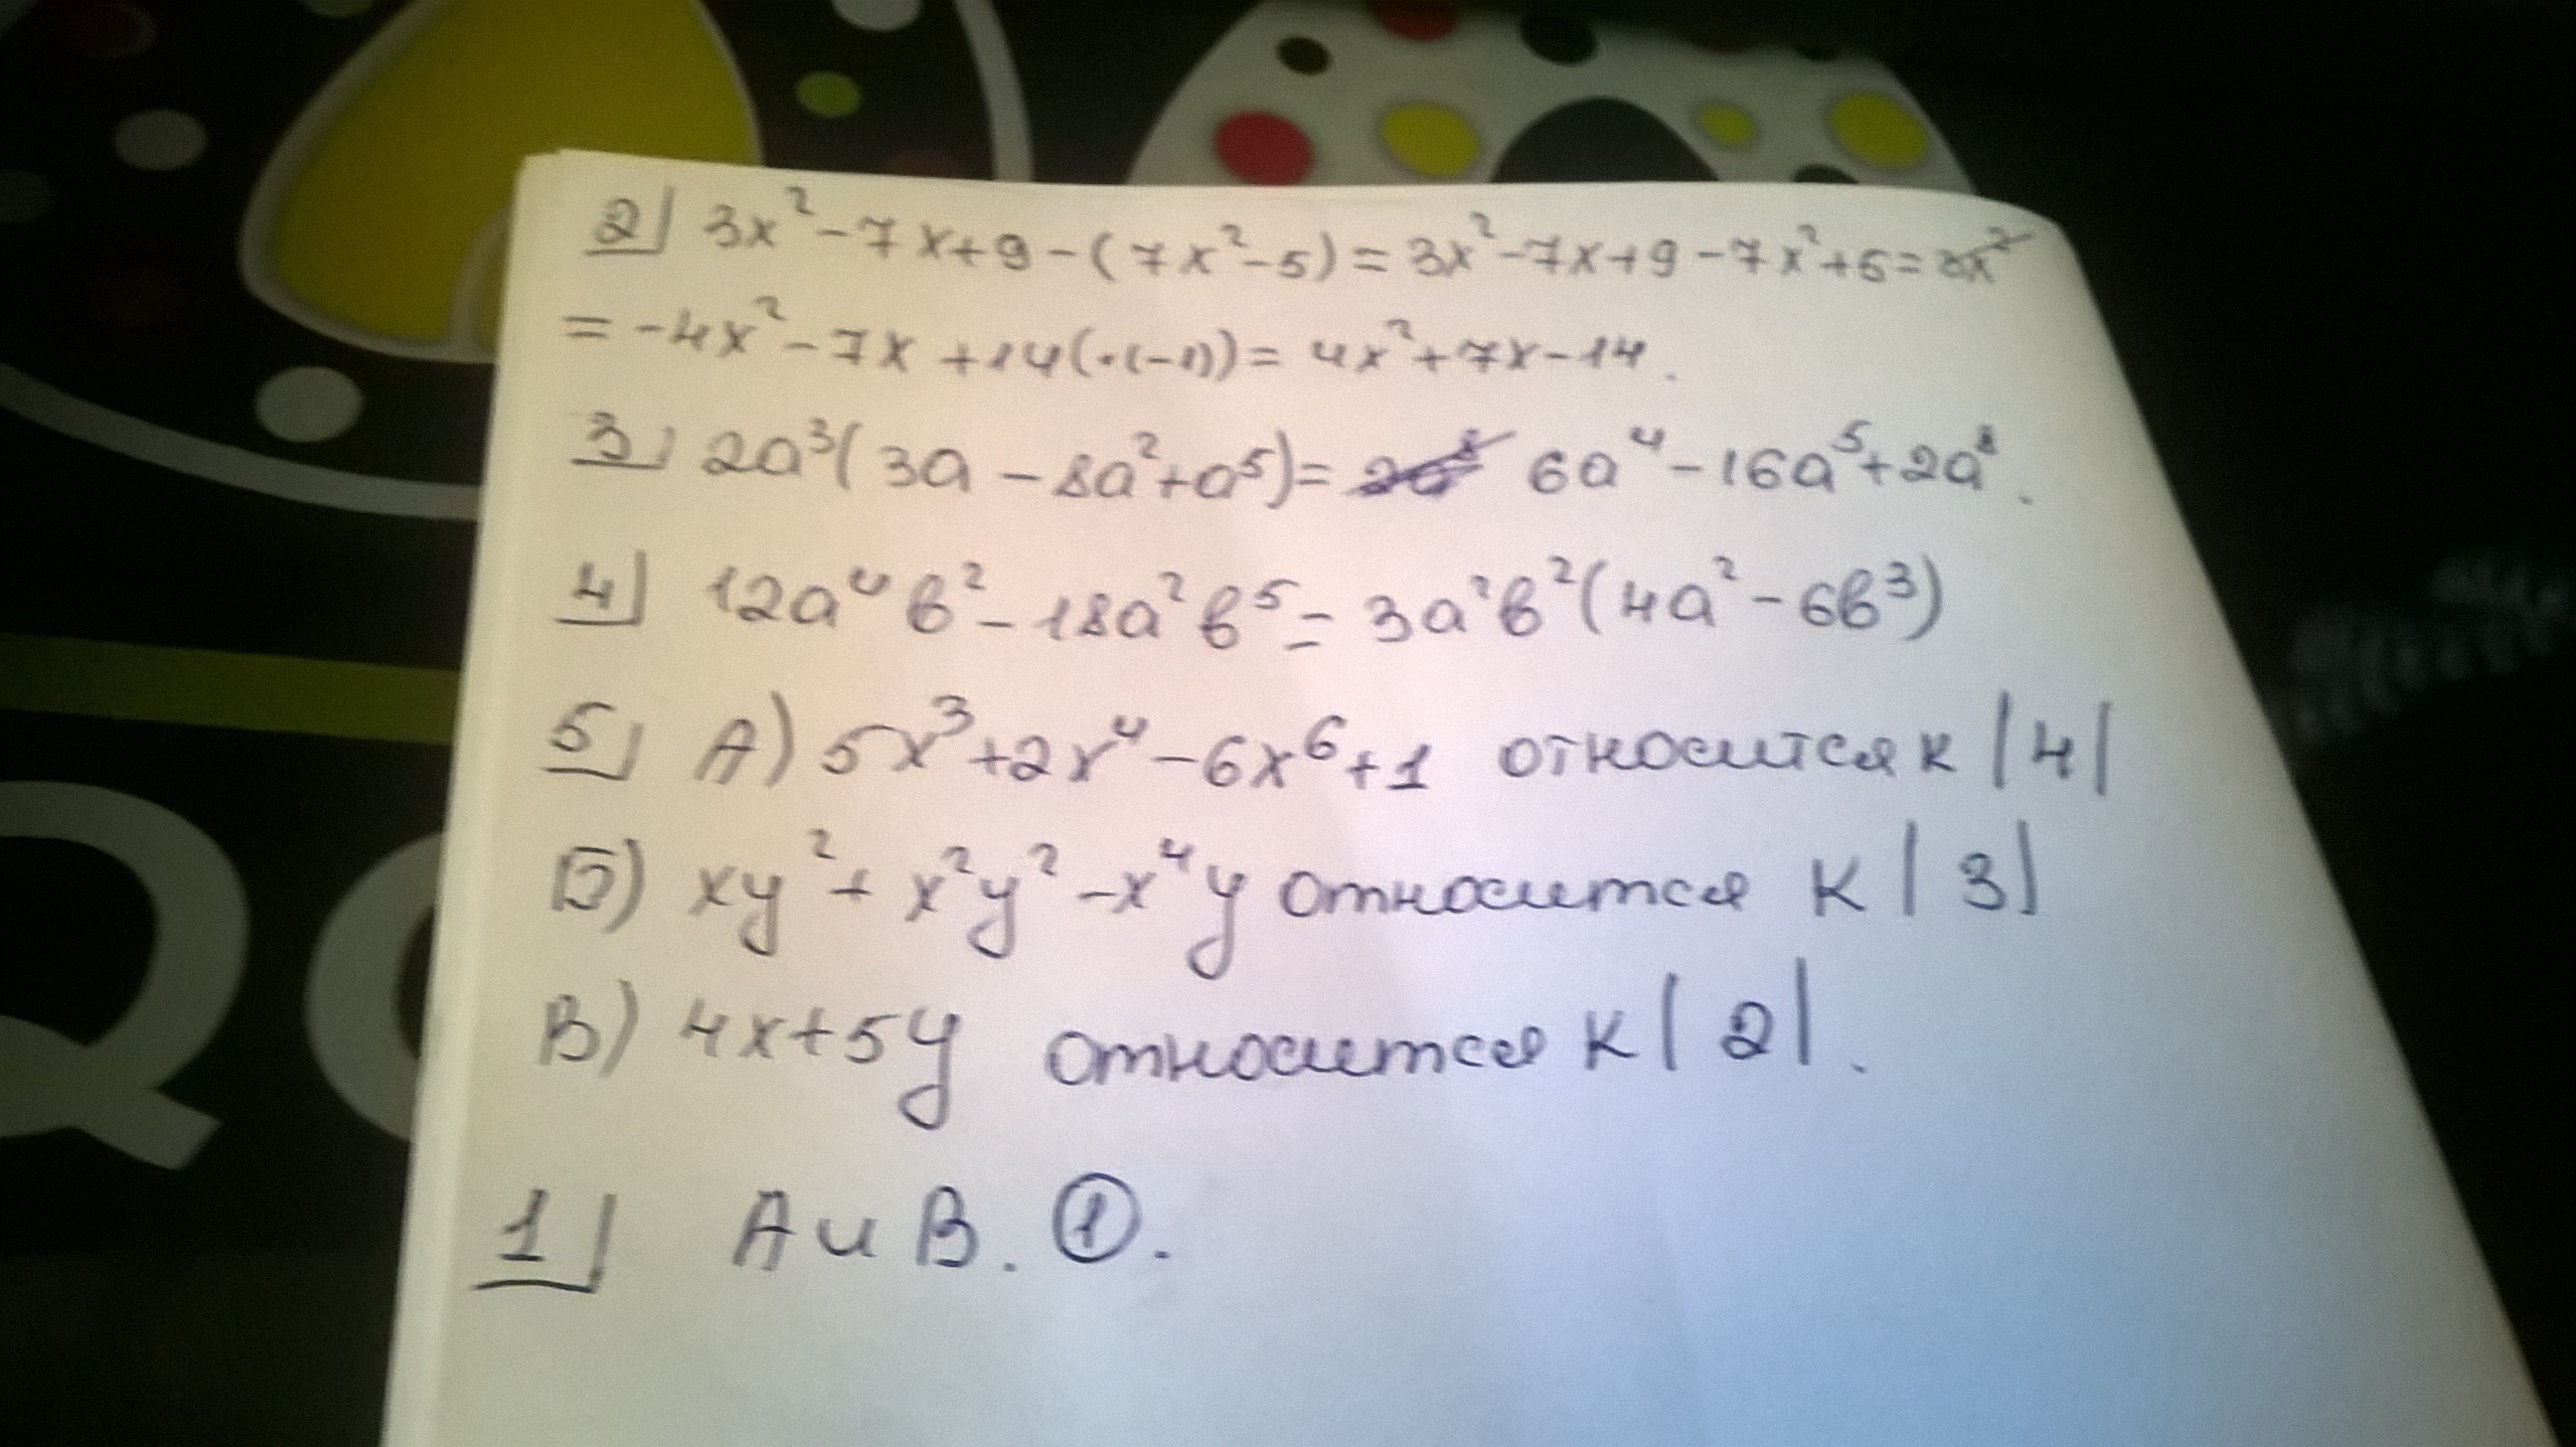 2) 3x² - 7x + 9 - (7x² - 5) = 3x² - 7x + 9 - 7x² + 5 =
= -4x² - 7x + 14 (·(-1)) = 4x² + 7x - 14.
3) 2a³(3a - 8a² + a⁵) = 6a⁴ - 16a⁵ + 2a⁸.
4) 12a⁴b² - 18a²b⁵ = 3a²b²(4a² - 6b³)
5) А) 5x³ + 2x⁴ - 6x⁶ + 1 относится к |4|
Б) xy² + x²y² - x⁴y относится к |3|
В) 4x + 5y относится к |2|.
1) А и В. ①.